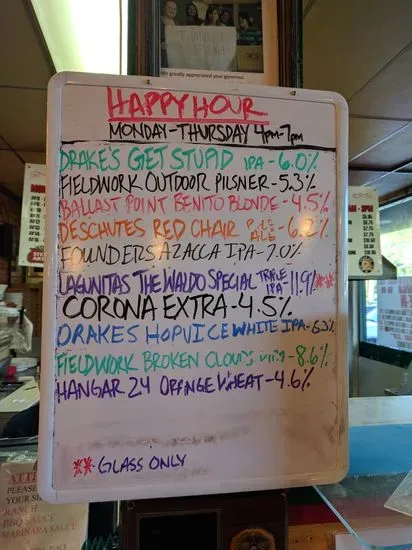 We greatly appreciated your generous
HAPPY HOUR
MONDAY-THURSDAY 4pm-7pm
DRAKE'S GET STUPID IPA-6.0%
FIELDWORK OUTDOOR PILSNER-5.3%
BALLAST POINT BENITO BLONDE-4.5%
DESCHUTES RED CHAIR PALE ALE-6.2%
FOUNDERS AZACCA IPA-7.0%
LAGUNITAS THE WALDO SPECIAL TRIPLE IPA-11.9%**
CORONA EXTRA-4.5%
DRAKES HOPVICE WHITE IPA-6.3%
FIELDWORK BROKEN CLOUDS -8.6%
HANGAR 24 ORANGE WHEAT-4.6%
** GLASS ONLY
PLEASE
YOUR
RANCH
BBQ SAUCE
MARINARA SAUCE